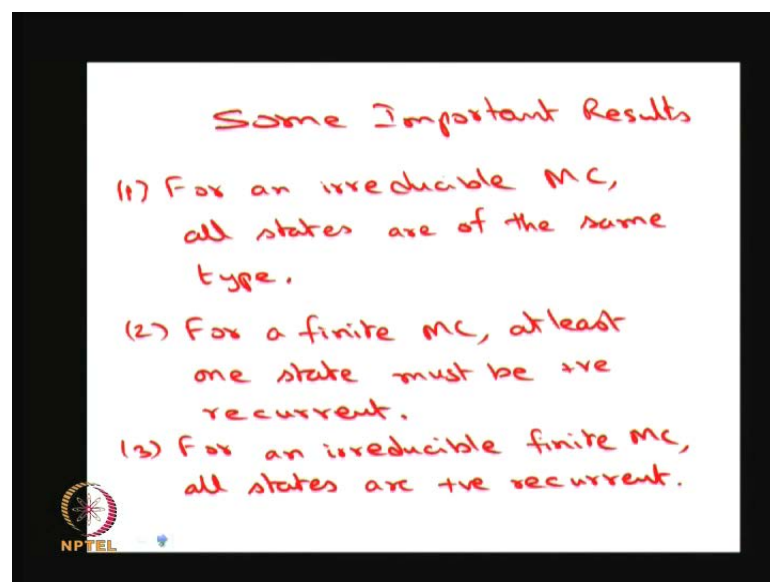 Some Important Results
(1) For an irreducible MC,
all states are of the same
type.
(2) For a finite MC, atleast
one state must be +ve
recurrent.
(3) For an irreducible finite MC,
all states are +ve recurrent.
NPTEL